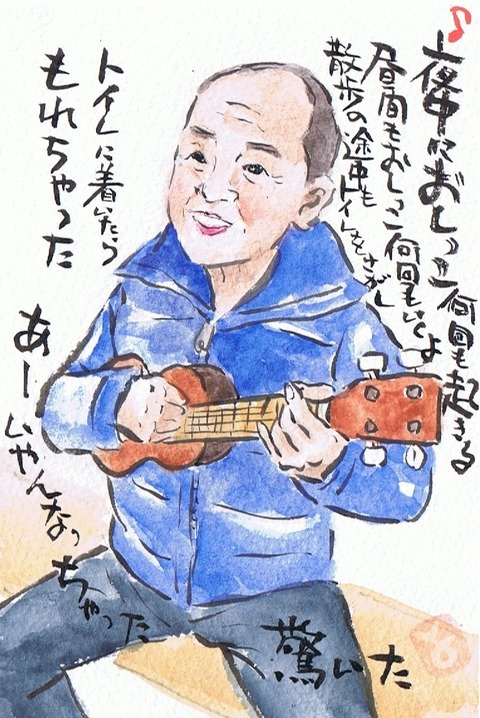 夜中におしっこ何回も起きる
昼間もおしっこ何回もいくよ
散歩の途中もトイレをさがし
トイレに着いたら
もれちゃった
あーいやんなっちゃった
驚いた